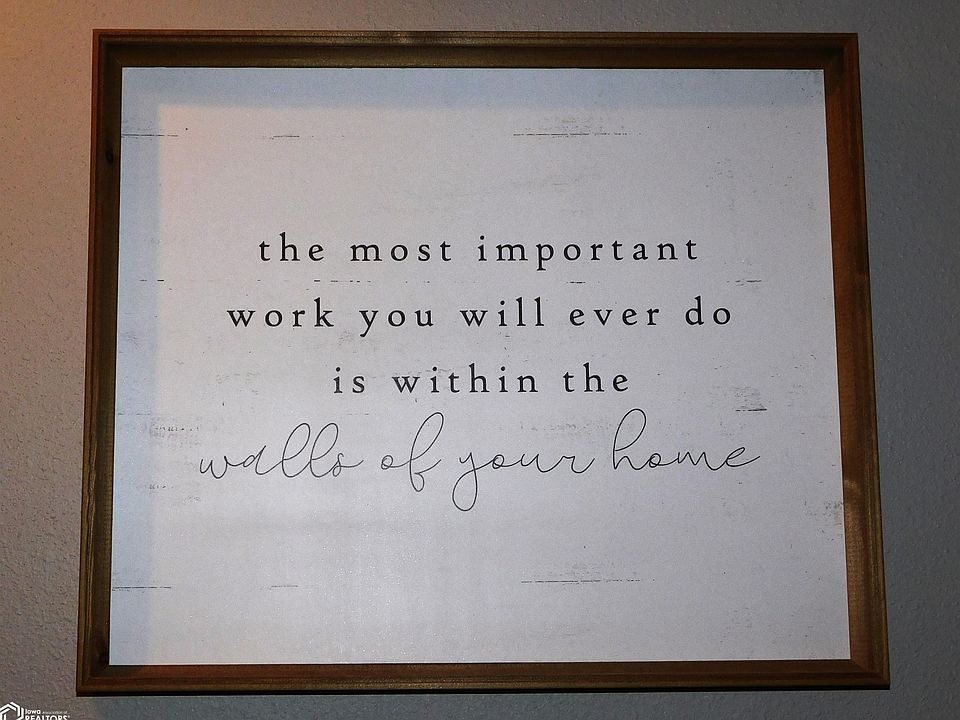 the most important
work you will ever do
is within the
walls of your home
Iowa Association of
REALTORS®